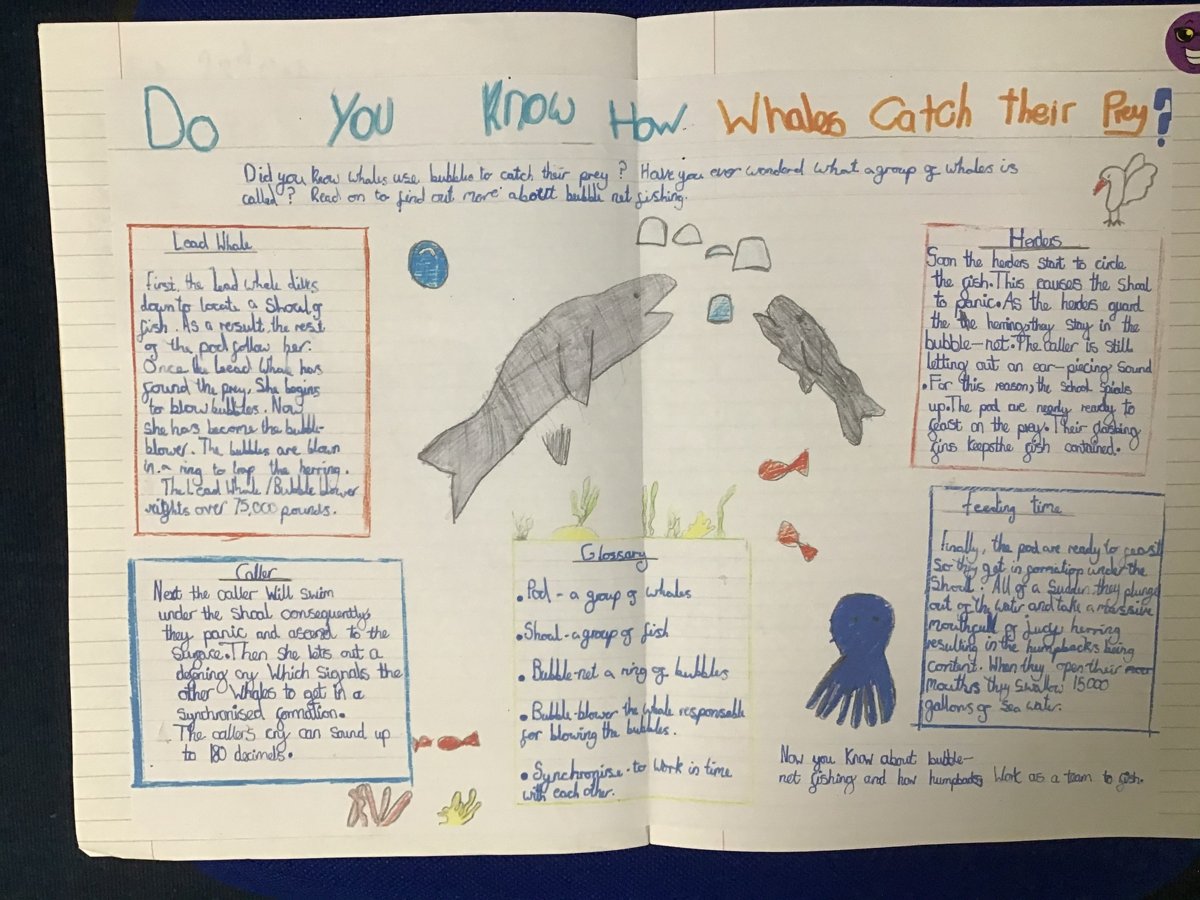 Do You Know How Whales Catch their Prey?
Did you know whales use bubbles to catch their prey? Have you ever wonderd what a group of whales is
called? Read on to find out more about bubble net fishing.
Lead Whale
First, the lead whale dives
down to locate a shoal of
fish. As a result, the rest
of the pod follow her.
Once the Lead Whale has
found the prey, She begins
to blow bubbles. Now
she has become the bubble-
blower. The bubbles are blown
in a ring to trap the herring.
The Lead Whale/Bubble blower
weights over 75,000 pounds.
Caller
Next the caller will swim
under the shoal consequently,
they panic and ascend to the
surface. Then she lets out a
defening cry which signals the
other whales to get in a
synchronised formation.
The caller's cry can sound up
to 180 decimels.
Glossary
• Pod - a group of whales
• Shoal - a group of fish
• Bubble-net a ring of bubbles
• Bubble-blower the whale responsable
for blowing the bubbles.
• Synchronise - to work in time
with each other.
Herders
Soon the herders start to circle
the fish. This causes the shoal
to panic. As the herders guard
the the herring, they stay in the
bubble-net. The caller is still
letting out an ear-piecing sound
. For this reason, the school spials
up. The pod are nearly ready to
feast on the prey. Their flashing
fins keeps the fish contained.
Feeding time
Finally, the pod are ready to feast
so they get in formation under the
shoal. All of a sudden, they plunge
out of the water and take a massive
mouthfull of juicy herring
resulting in the humpbacks being
content. When they open their
mouths they swallow 15000
gallons of sea water.
Now you know about bubble-
net fishing and how humpbacks work as a team to fish.